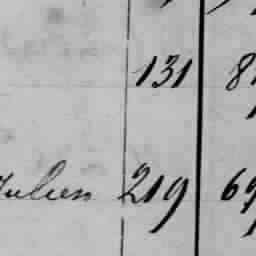 131 8
Julien 219 69